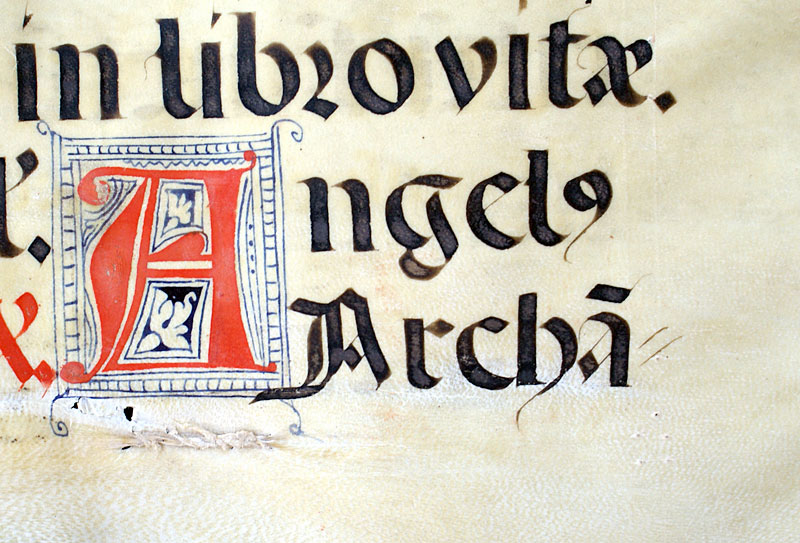 in libro vitæ.
Angelꝰ
Archā